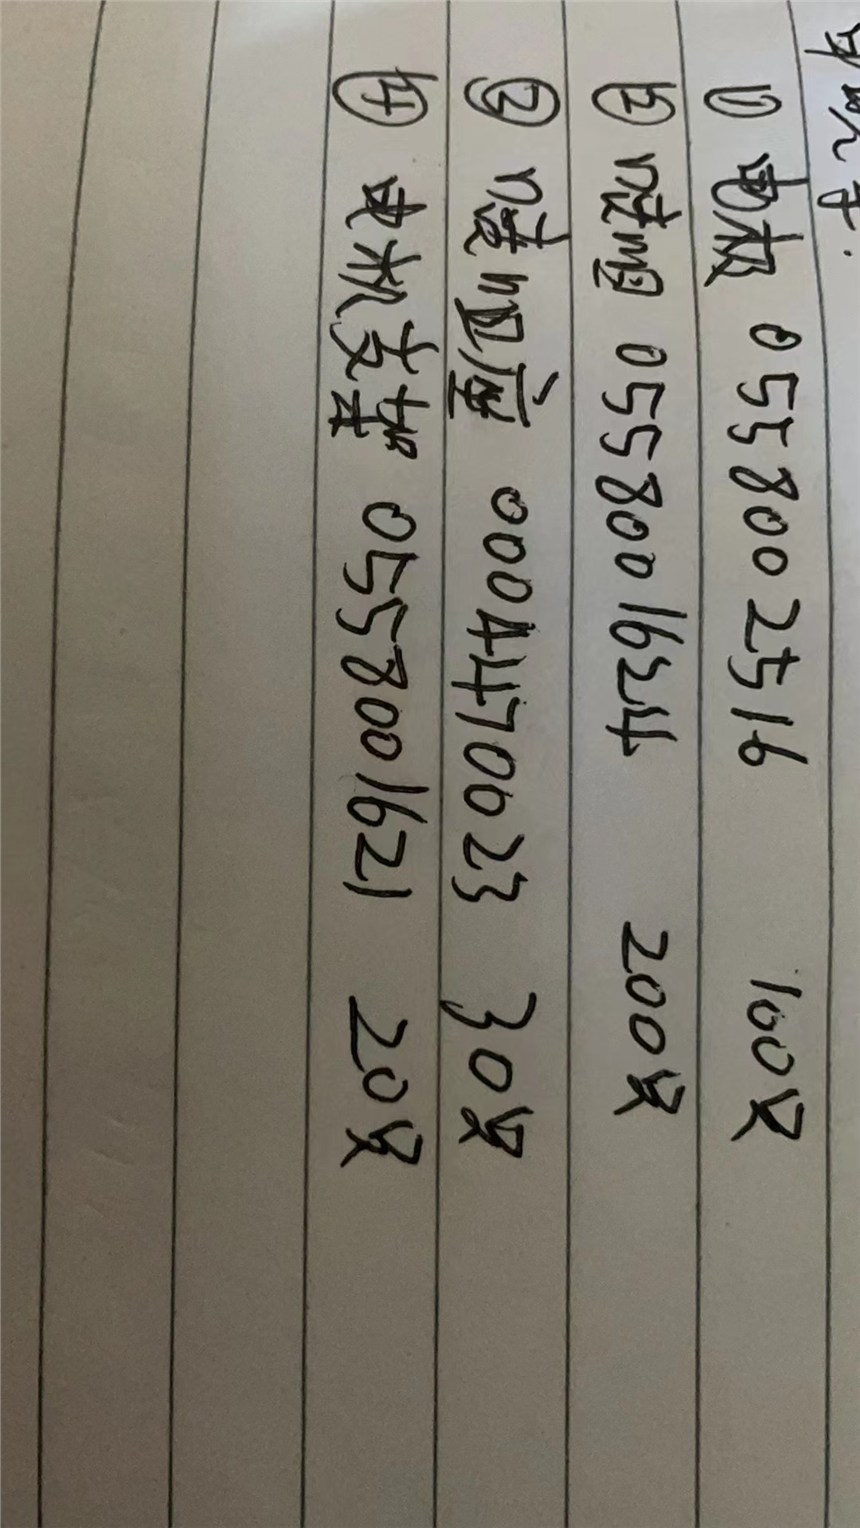 ① 电极 0558002516 100只
② 喷咀 0558001624 200只
③ 喷咀座 0004470023 30只
④ 电机支架 0558001621 20只